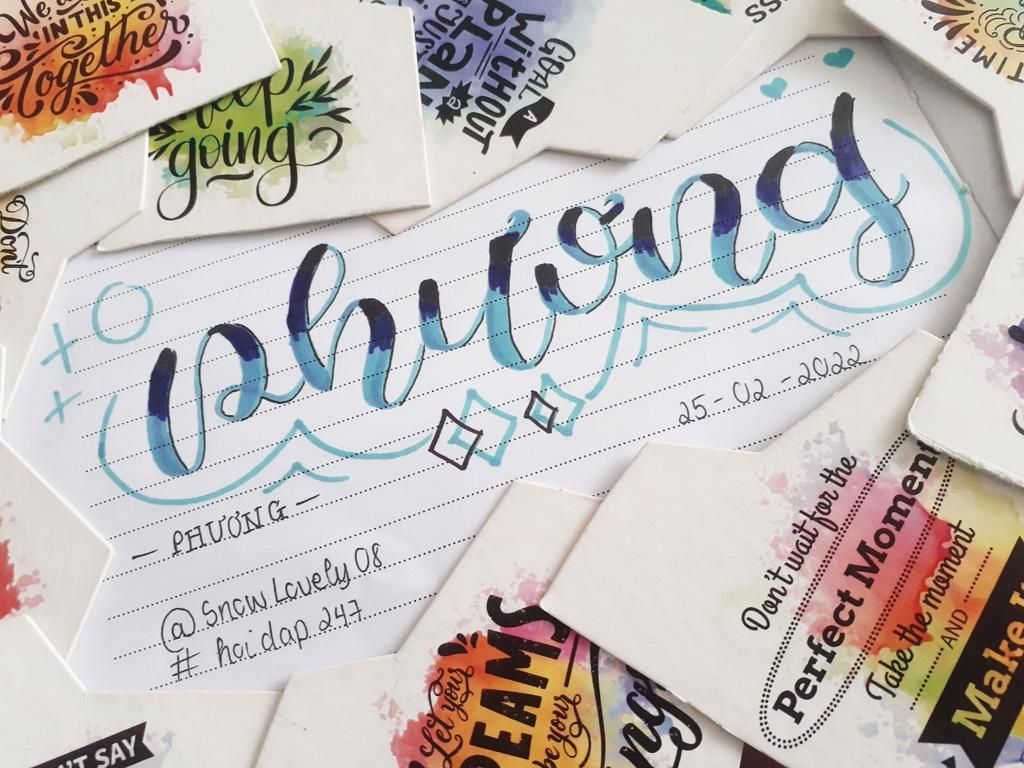 We
IN THIS
Together
going
GOAL
A
WITHOUT
PLAN
TIME
Don't
phương
25-02-2022
— PHƯƠNG —
@ Snow Lovely 08
# hoidap 247
Don't wait for the
Perfect Moment
Take the moment
AND
Make
Let your
DREAMS
be your
N'T SAY